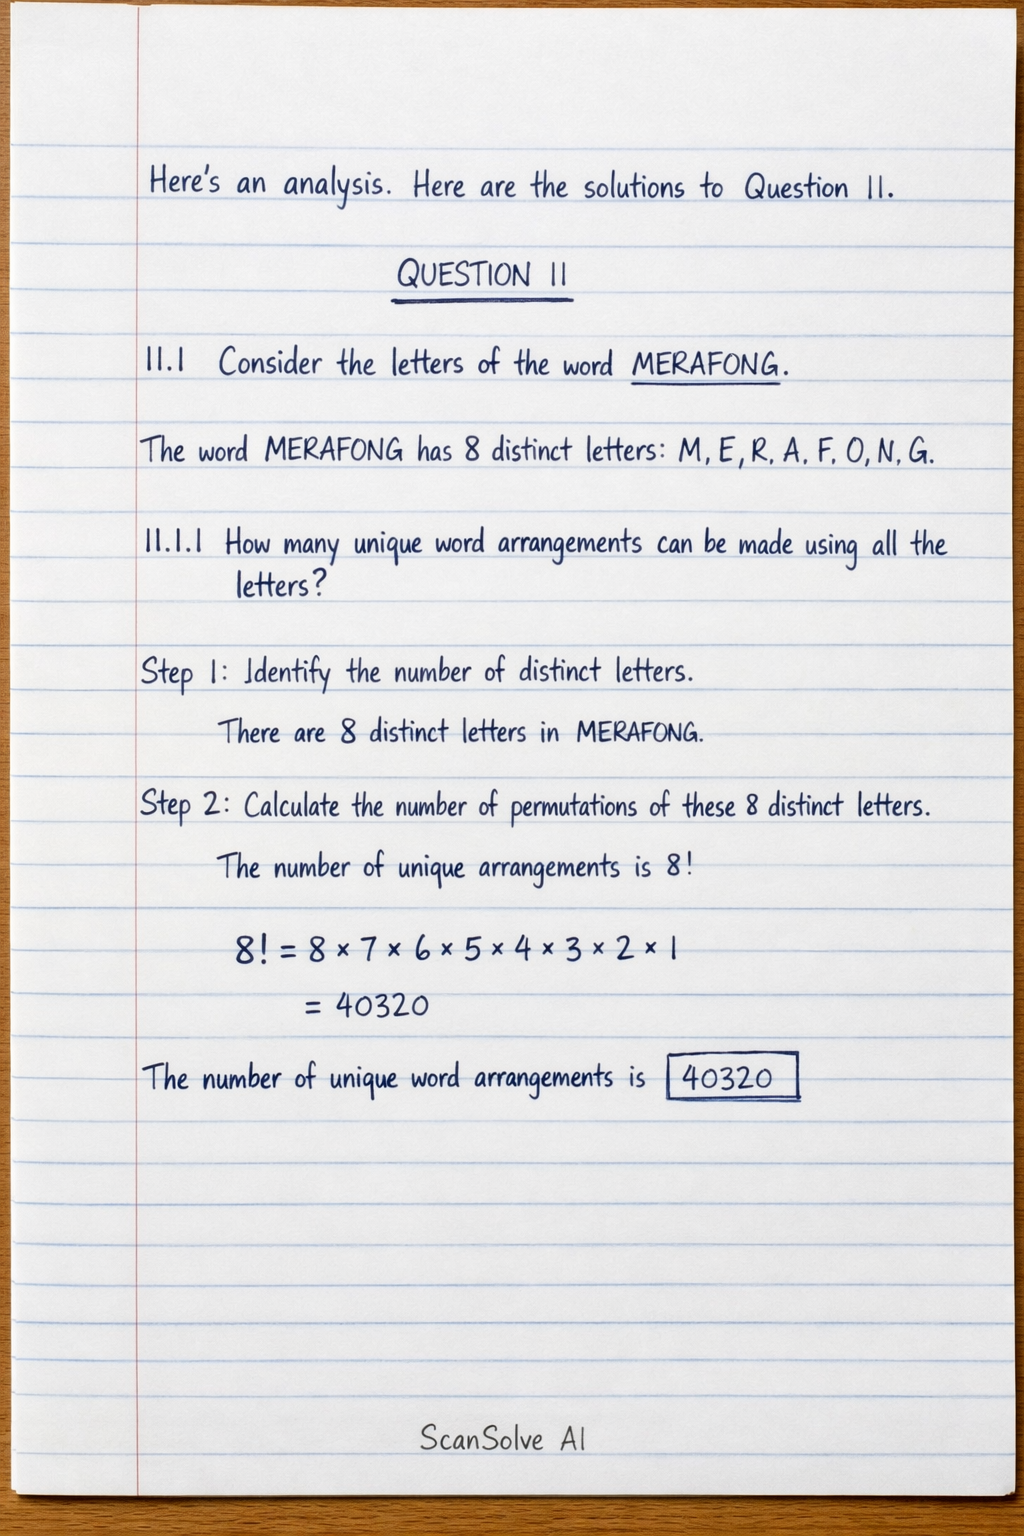 Here's an analysis. Here are the solutions to Question 11.
QUESTION 11
11.1 Consider the letters of the word MERAFONG.
The word MERAFONG has 8 distinct letters: M, E, R, A, F, O, N, G.
11.1.1 How many unique word arrangements can be made using all the
letters?
Step 1: Identify the number of distinct letters.
There are 8 distinct letters in MERAFONG.
Step 2: Calculate the number of permutations of these 8 distinct letters.
The number of unique arrangements is 8!
8! = 8 × 7 × 6 × 5 × 4 × 3 × 2 × 1
= 40320
The number of unique word arrangements is 40320
ScanSolve AI